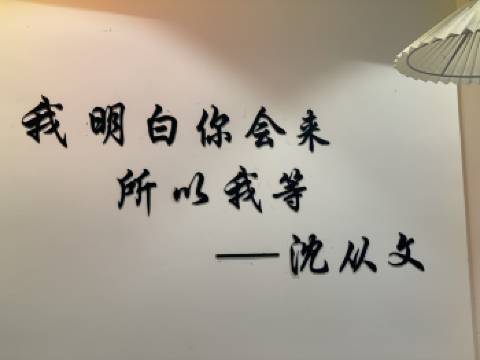 我明白你会来
所以我等
——沈从文